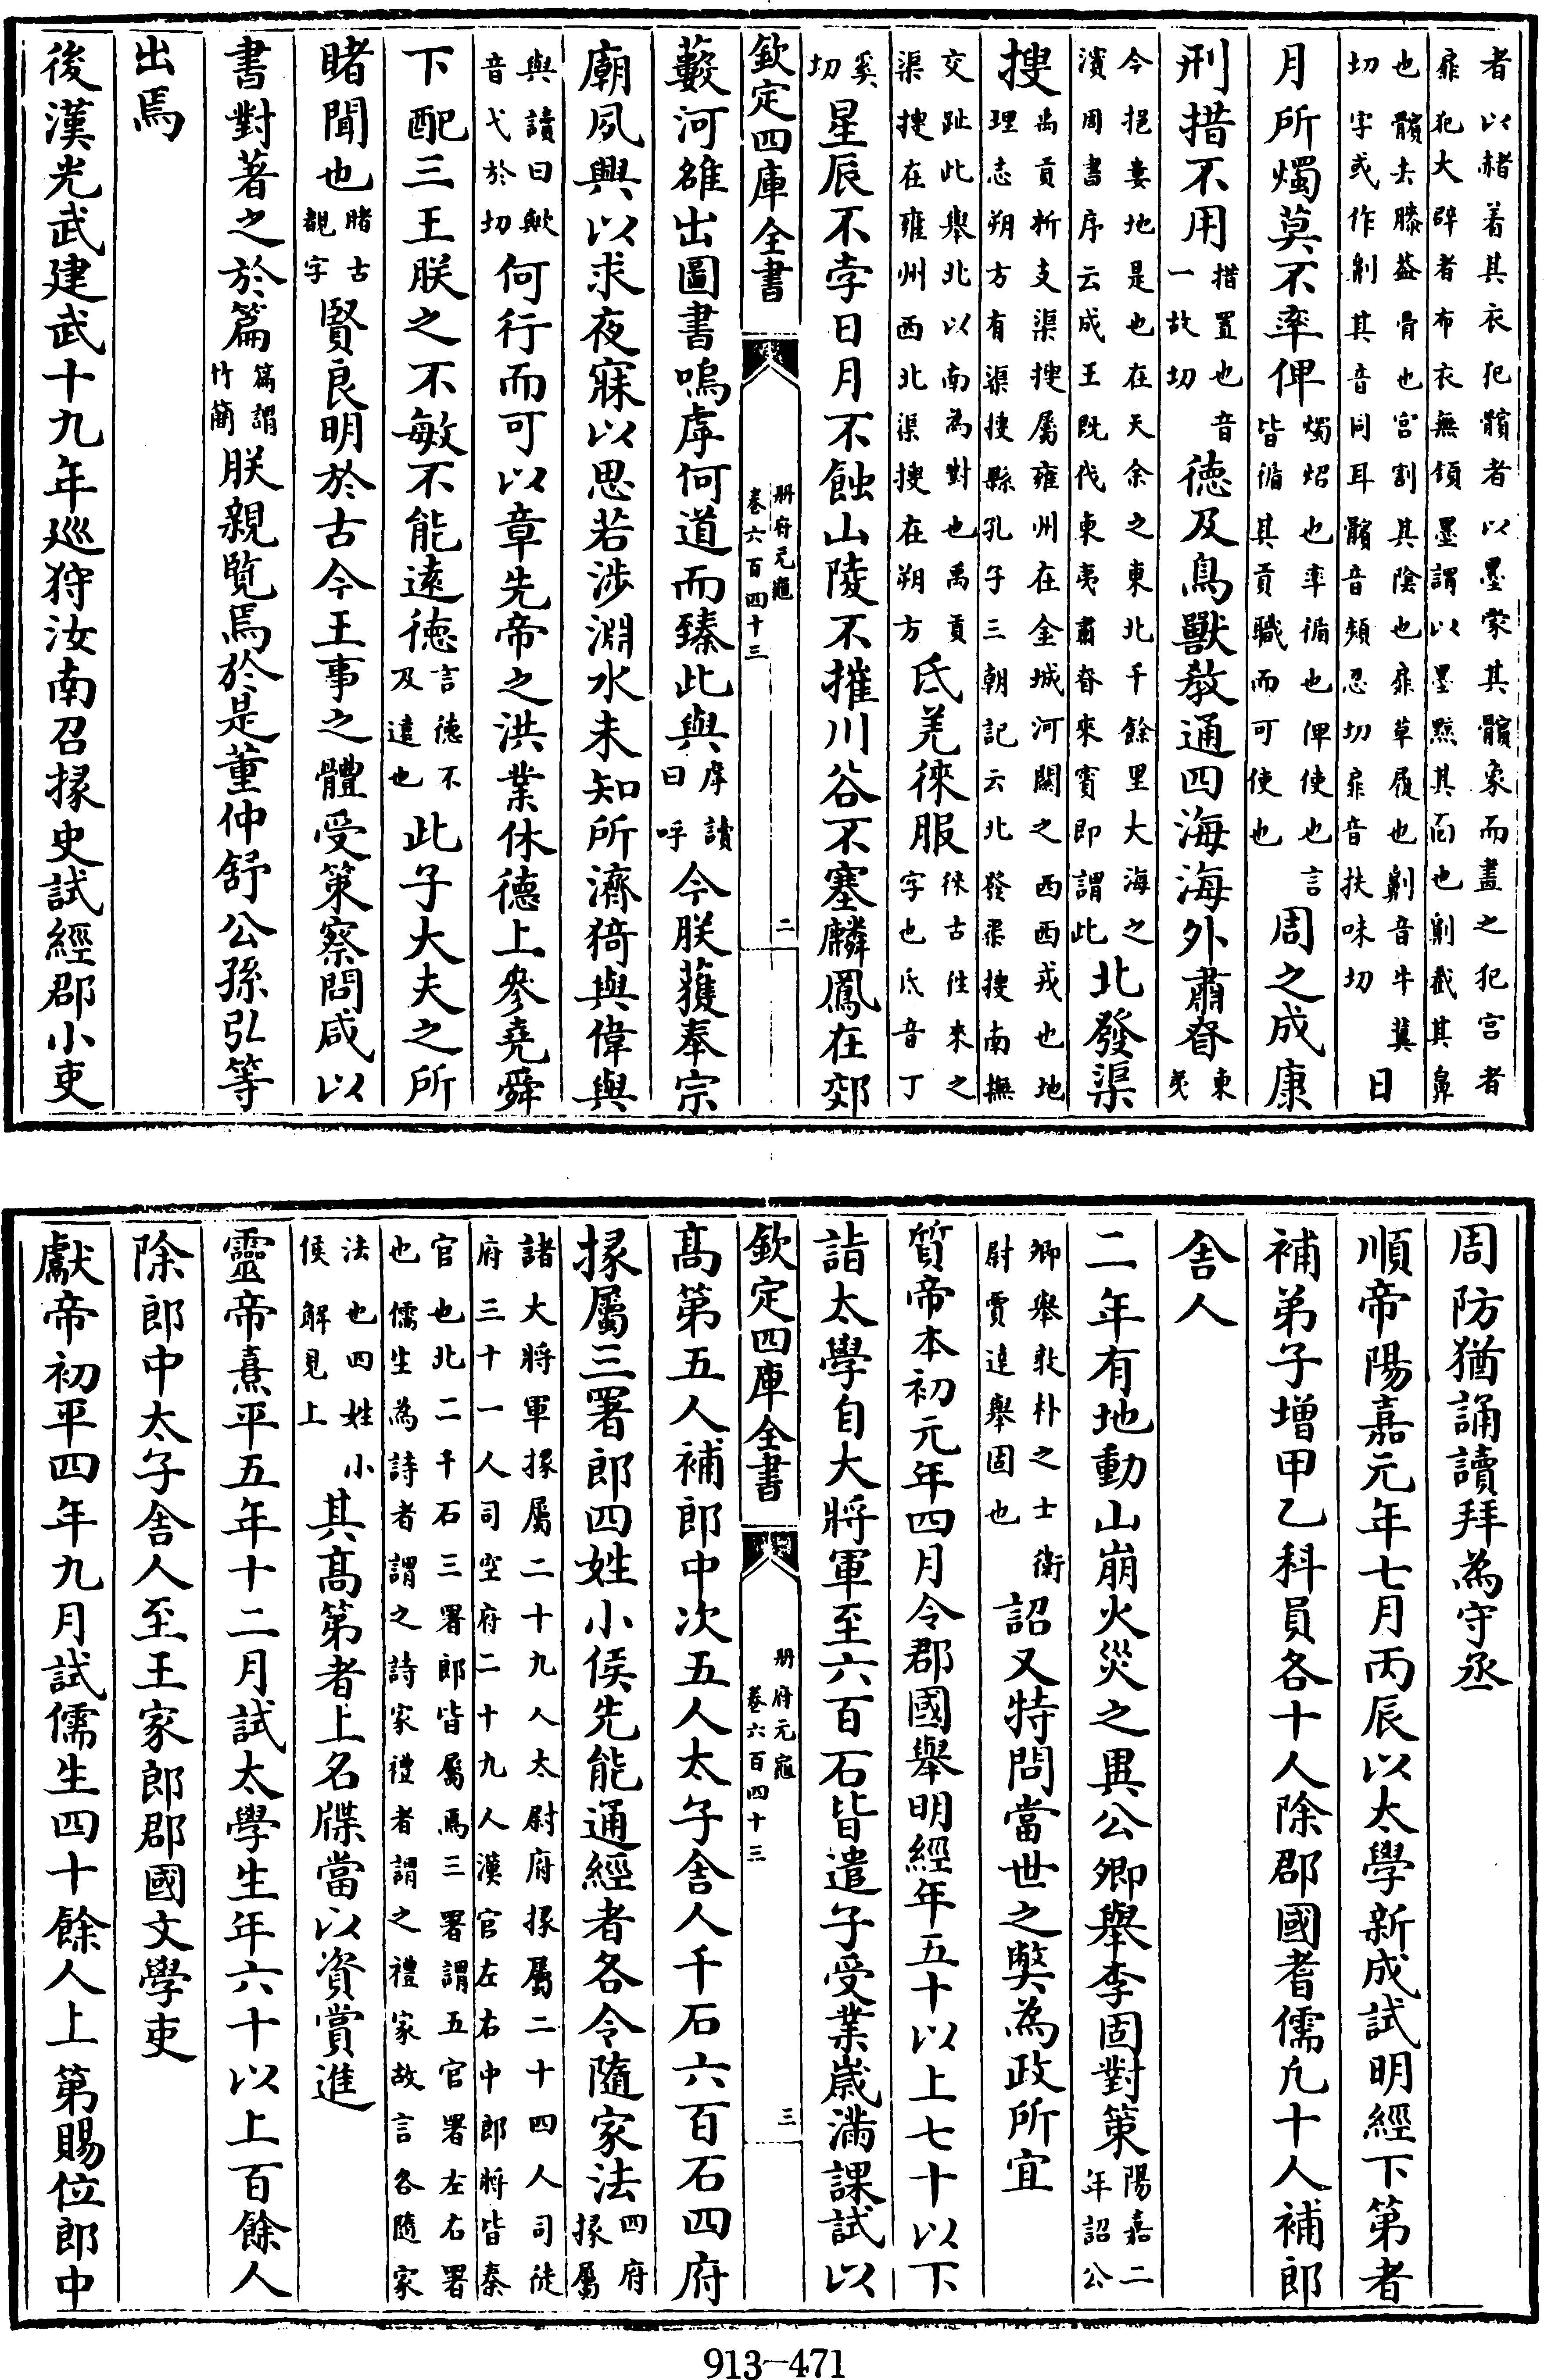 者以赭着其衣犯髕者以墨蒙其髕象而畫之犯宫者
扉犯大辟者布衣無領墨謂以墨黥其面也劓截其鼻
也髕去膝葢骨也宫割其隂也扉草履也劓音牛冀
切字或作劓其音同耳髕音頻忍切扉音扶味切 日
月所燭莫不率俾燭炤也率循也俾使也言皆循其貢職而可使也周之成康
刑措不用措置也音一故切徳及鳥獸教通四海海外肅眘東夷
今挹婁地是也在夫余之東北千餘里大海之
濱周書序云成王既伐東夷肅眘來賓即謂此北發渠
搜禹貢析支渠搜屬雍州在金城河闗之西西戎也地理志朔方有渠搜縣孔子三朝記云北發渠搜南撫
交趾此舉北以南為對也禹貢渠搜在雍州西北渠搜在朔方氐羌徠服徠古往來之字也氐音丁
奚切星辰不孛日月不蝕山陵不摧川谷不塞麟鳳在郊
欽定四庫全書 册府元龜 卷六百四十三 二
藪河雒出圖書嗚虖何道而臻此與虖讀曰呼今朕獲奉宗
廟夙興以求夜寐以思若涉淵水未知所濟猗與偉與
與讀曰歟音弋於切何行而可以章先帝之洪業休徳上參堯舜
下配三王朕之不敏不能逺徳言徳不及逺也此子大夫之所
睹聞也睹古覩字賢良明於古今王事之體受策察問咸以
書對著之於篇篇謂竹簡朕親覧焉於是董仲舒公孫弘等
出焉
後漢光武建武十九年廵狩汝南召掾史試經郡小吏
周防猶誦讀拜為守丞
順帝陽嘉元年七月丙辰以太學新成試明經下第者
補弟子增甲乙科員各十人除郡國耆儒凡十人補郎
舍人
二年有地動山崩火災之異公卿舉李固對策陽嘉二年詔公
卿舉敦朴之士衛尉賈逵舉固也詔又特問當世之弊為政所宜
質帝本初元年四月令郡國舉明經年五十以上七十以下
詣太學自大將軍至六百石皆遣子受業歲滿課試以
欽定四庫全書 册府元龜 卷六百四十三 三
髙第五人補郎中次五人太子舍人千石六百石四府
掾屬三署郎四姓小侯先能通經者各令隨家法四府掾屬
諸大將軍掾屬二十九人太尉府掾屬二十四人司徒
府三十一人司空府二十九人漢官左右中郎將皆秦
官也北二千石三署郎皆屬焉三署謂五官署左右署
也儒生為詩者謂之詩家禮者謂之禮家故言各隨家
法也四姓小侯解見上其髙第者上名牒當以資賞進
靈帝熹平五年十二月試太學生年六十以上百餘人
除郎中太子舍人至王家郎郡國文學吏
獻帝初平四年九月試儒生四十餘人上第賜位郎中
913-471